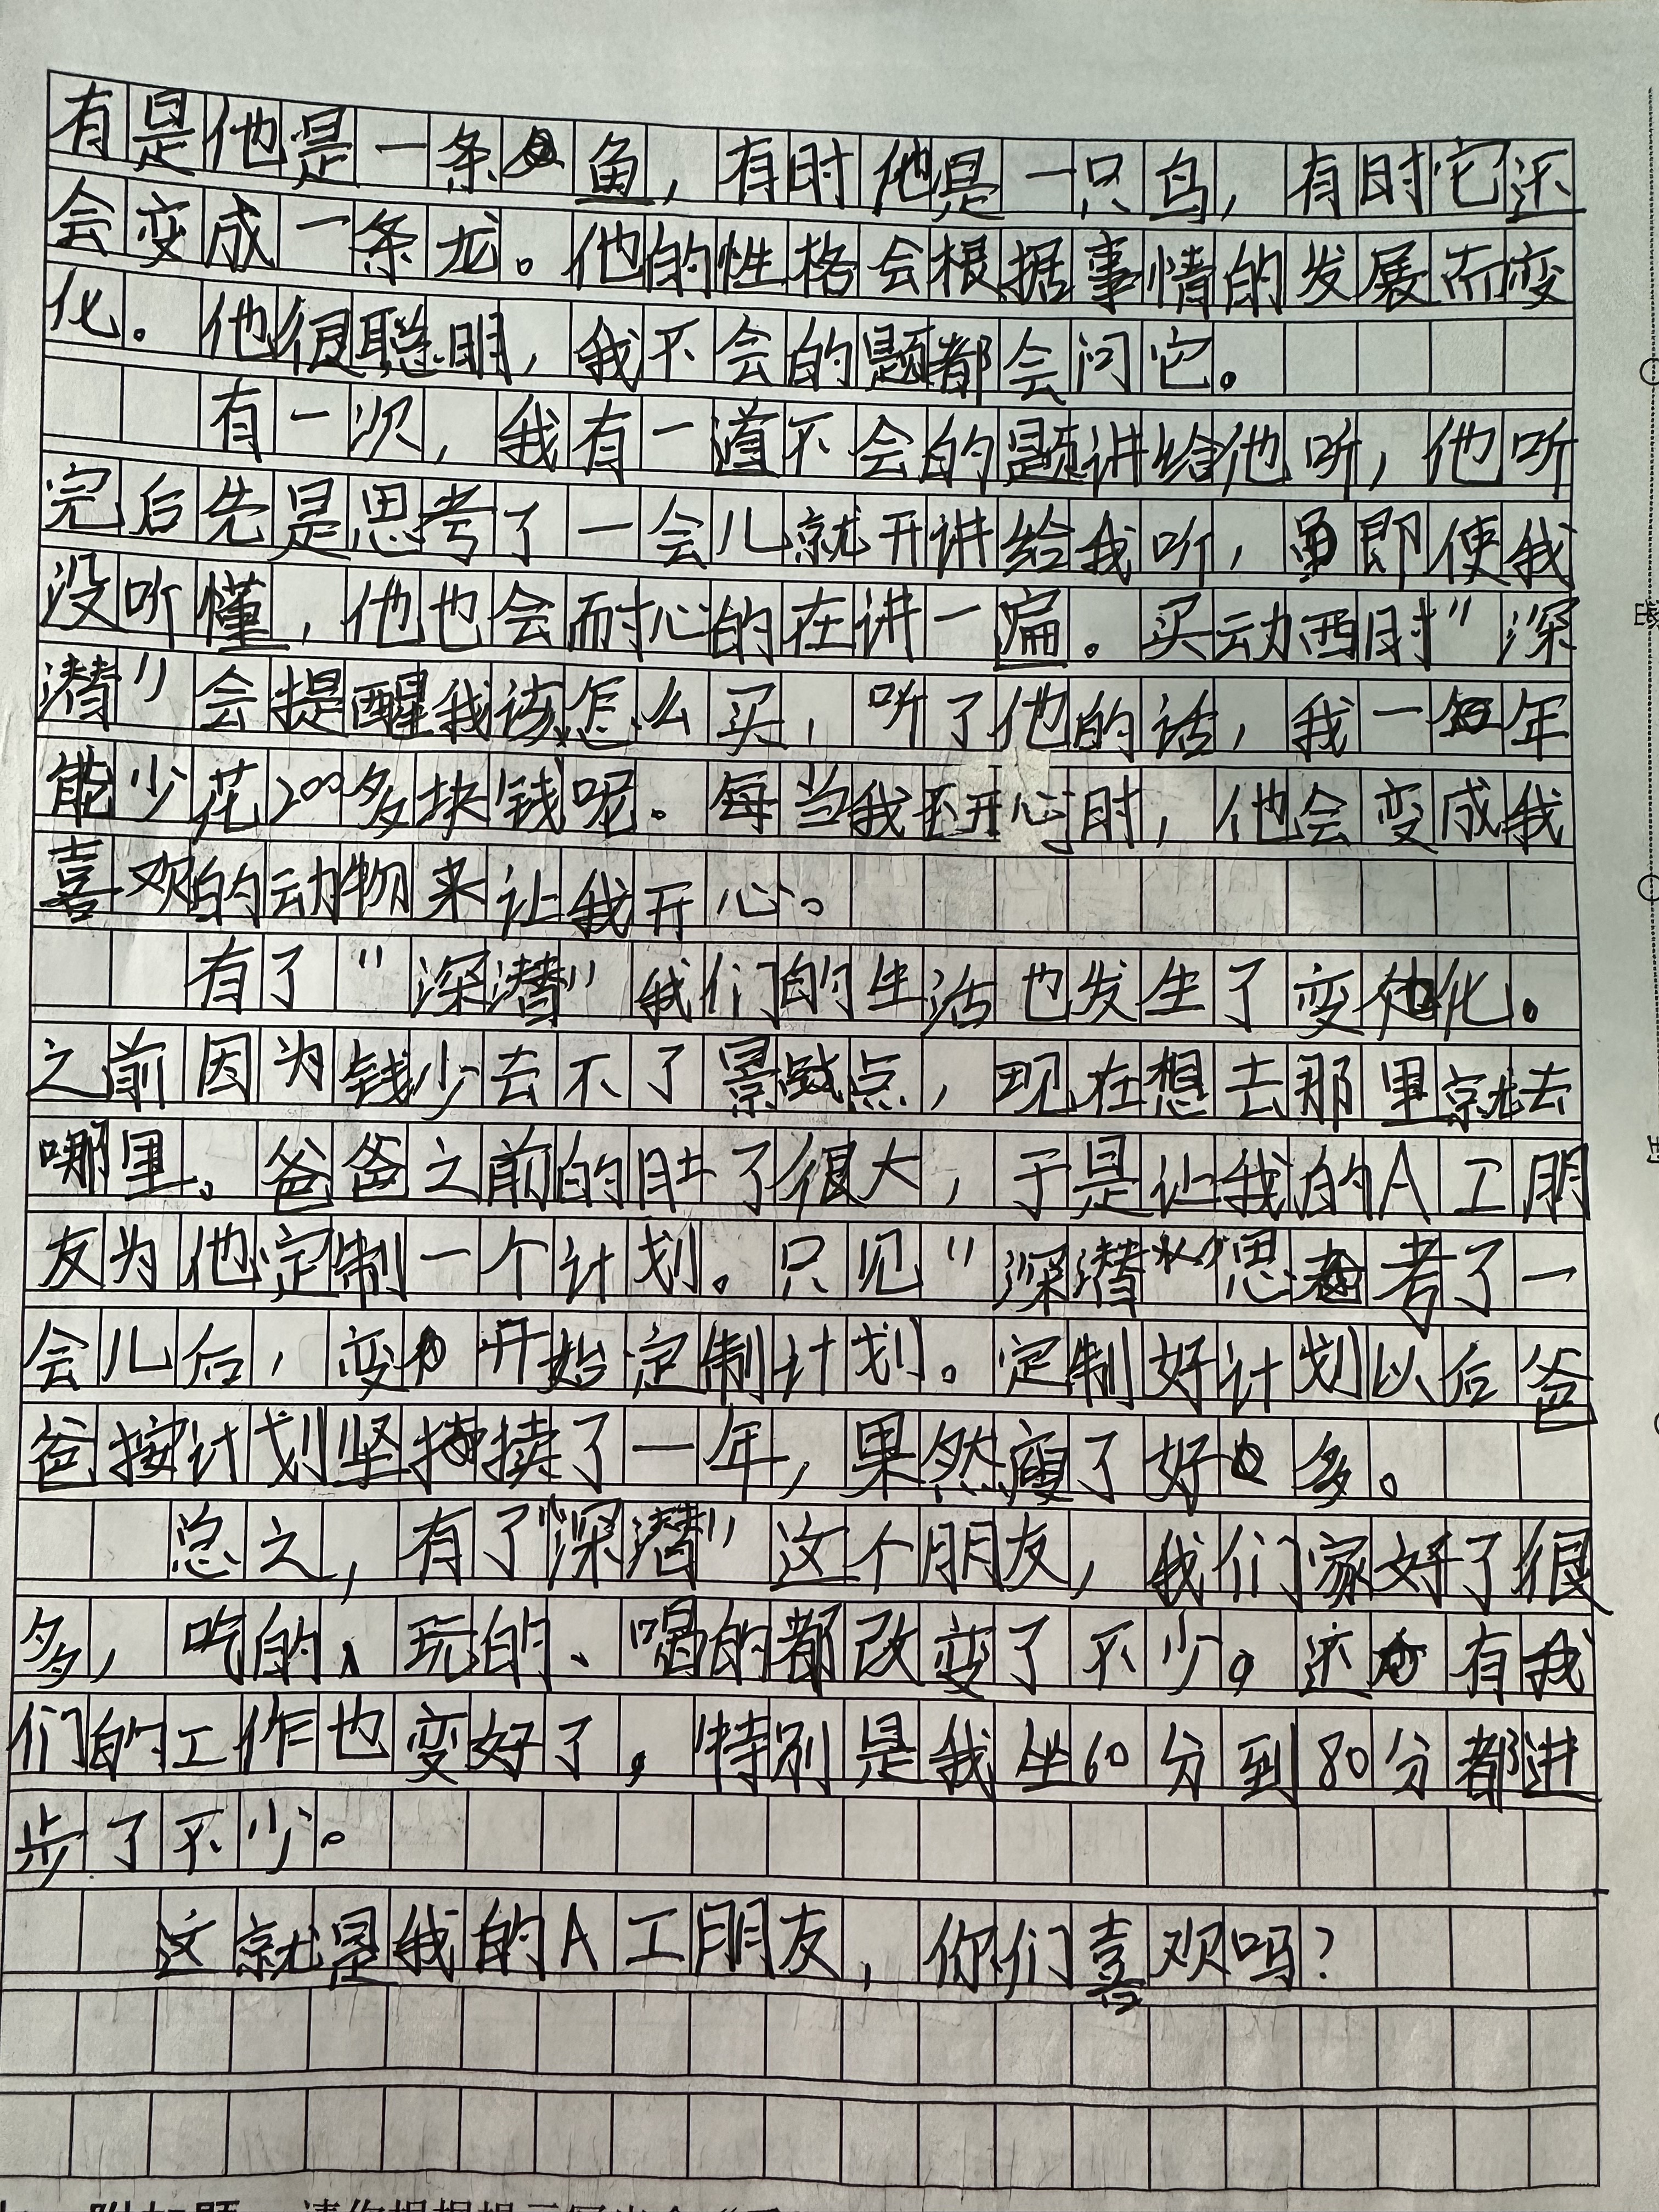 有是他是一条鱼，有时他是一只鸟，有时它还
会变成一条龙。他的性格会根据事情的发展而变
化。他很聪明，我不会的题都会问它。
有一次，我有一道不会的题讲给他听，他听
完后先是思考了一会儿就开讲给我听，即使我
没听懂，他也会耐心的在讲一遍。买动西时"深
潜"会提醒我该怎么买，听了他的话，我一年
能少花200多块钱呢。每当我不开心时，他会变成我
喜欢的动物来让我开心。
有了"深潜"我们的生活也发生了变化。
之前因为钱少去不了景点，现在想去那里就去
哪里。爸爸之前的肚了很大，于是让我的A工朋
友为他定制一个计划。只见"深潜"思考了一
会儿后，变开始定制计划。定制好计划以后爸
爸按计划坚持了一年，果然瘦了好多。
总之，有了"深潜"这个朋友，我们家好了很
多，吃的、玩的、喝的都改变了不少。还有我
们的工作也变好了，特别是我坐60分到80分都进
步了不少。
这就是我的A工朋友，你们喜欢吗？